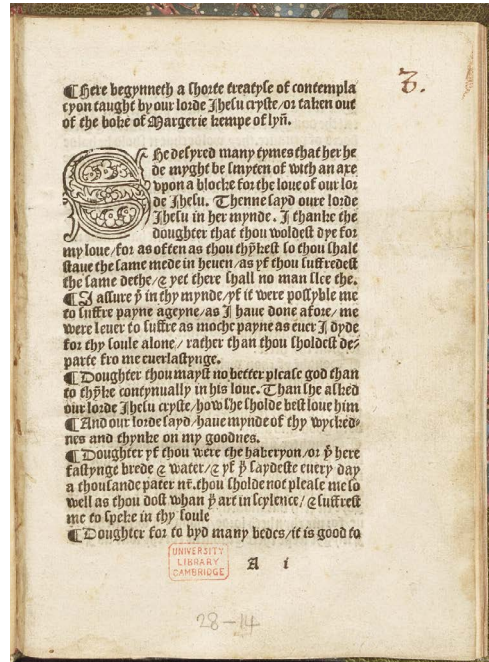 3.
¶Here begynneth a shorte treatyse of contempla
cyon taught by our lorde Jhesu cryste/or taken out
of the boke of Margerie kempe of lyn̄.
SHe desyred many tymes that her he
de myght be smyten of with an axe
vpon a blocke for the loue of our lor
de Jhesu. Thenne sayd oure lorde
Jhesu in her mynde. I thanke the
doughter that thou woldest dye for
my loue/for as often as thou thȳkest so thou shalt
haue the same mede in heuen/as yf thou suffredest
the same dethe/⁊ yet there shall no man slee the.
¶I assure yͧ in thy mynde/yf it were possyble me
to suffre payne ageyne/as I haue done afore/me
were leuer to suffre as moche payne as euer I dyde
for thy soule alone/rather than thou sholdest de-
parte fro me euerlastynge.
¶Doughter thou mayst no better please god than
to thȳke contynually in his loue. Than she asked
our lorde Jhesu cryste/how she sholde best loue him
¶And our lorde sayd/haue mynde of thy wycked-
nes and thynke on my goodnes.
¶Doughter yf thou were the haberyon/or yͤ here
fastynge brede ⁊ water/⁊ yf yͧ saydeste euery day
a thousande pater nr̄.thou sholde not please me so
well as thou dost whan yͧ art in scylence/⁊ suffrest
me to speke in thy soule
¶Doughter for to byd many bedes/it is good to
A i
UNIVERSITY
LIBRARY
CAMBRIDGE
28-14